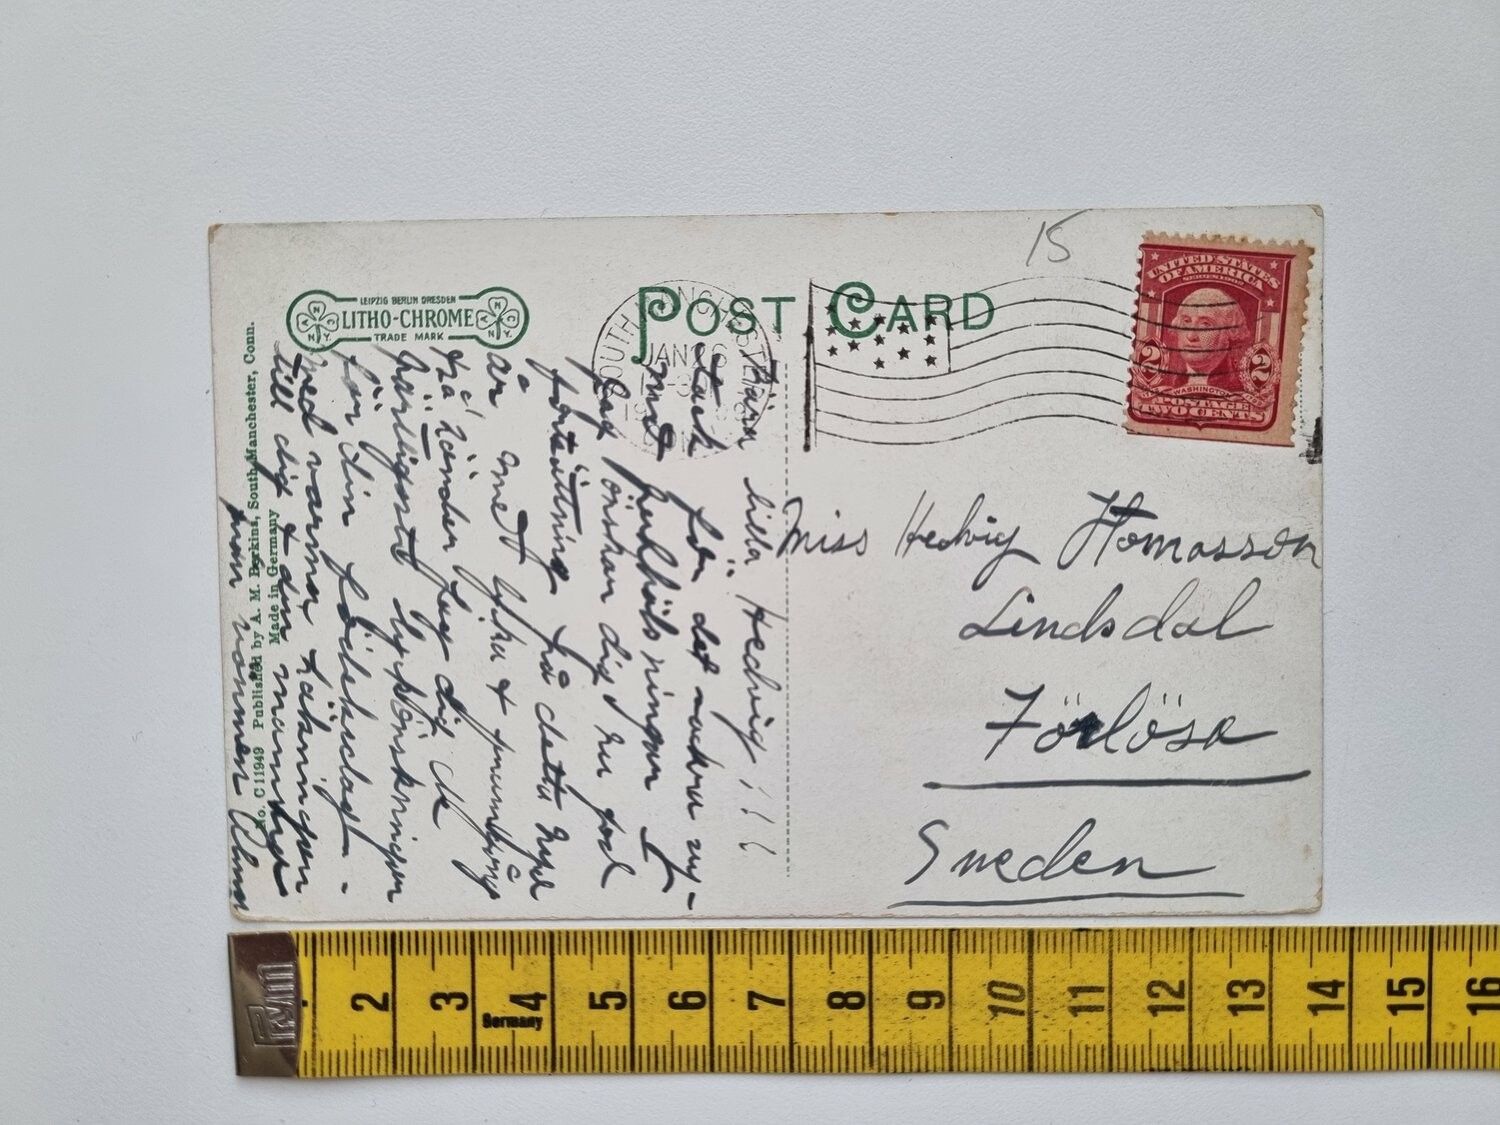 LEIPZIG BERLIN DRESDEN
LITHO-CHROME
TRADE MARK
ANC
N.Y.
ANC
N.Y.
POST CARD
15
SOUTH MANCHESTER
JAN 26
UNITED STATES
OF AMERICA
2 2
WASHINGTON
POSTAGE
TWO CENTS
No. C 11949 Published by A. M. Perkins, South Manchester, Conn.
Made in Germany
Kära lilla Hedvig!!!
Tack för det vackra ny-
Jag önskar dig en god
fortsättning på detta nya
år med lycka &
händer dig de
härligaste lyckönskningar
för din födelsedag.
med varma hälsningar
till dig & din mamma
från vännen Alma
Miss Hedvig Thomasson
Lindsdal
Förlösa
Sweden
Prym
2 3 4 5 6 7 8 9 10 11 12 13 14 15 16
Germany